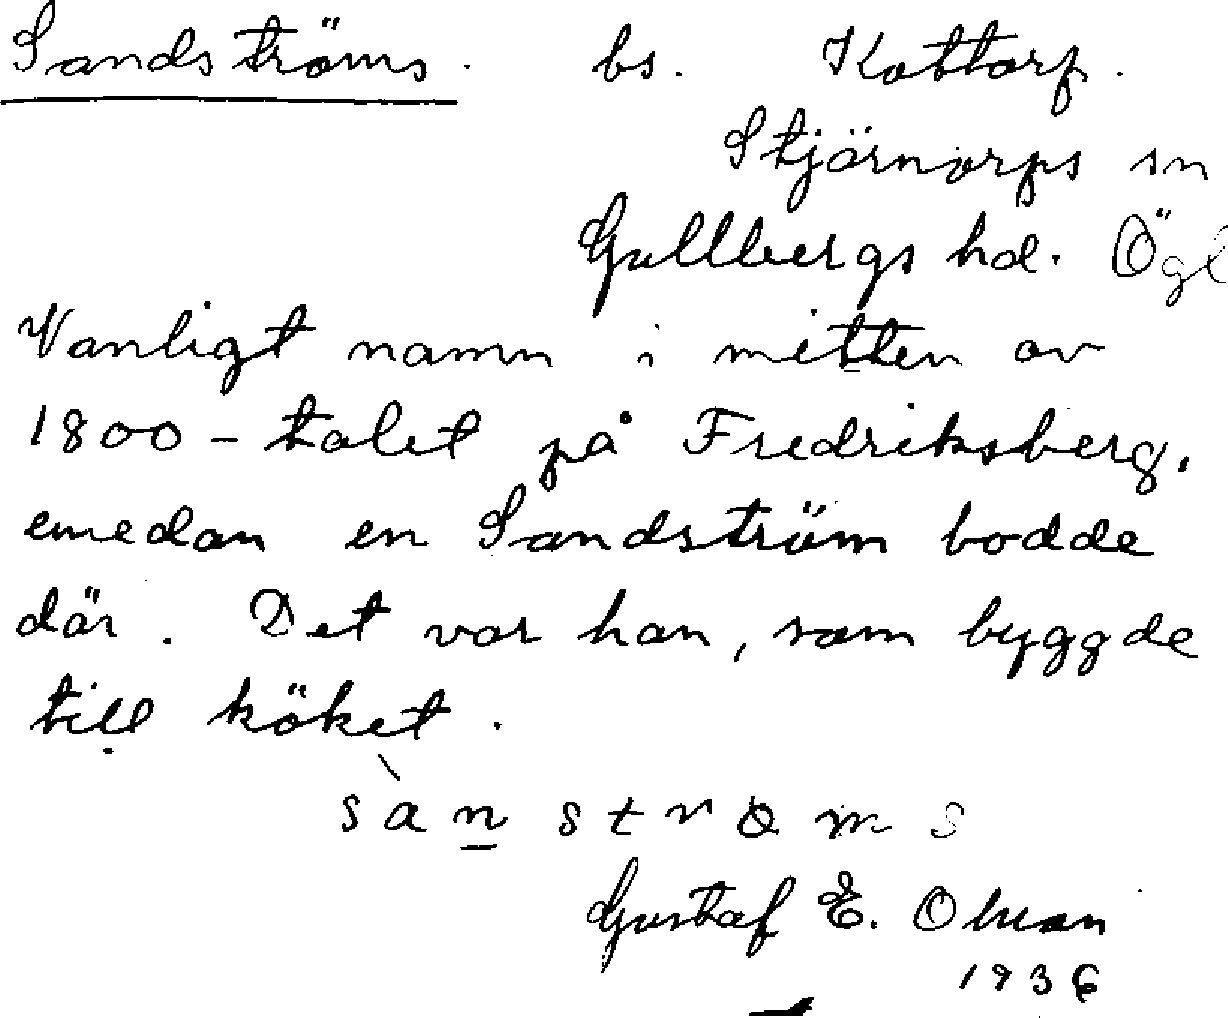 Sandströms. bs. Kottorp.
Stjärnorps sn
Gullbergs hd. Ögl
Vanligt namn i mitten av
1800-talet på Fredriksberg,
emedan en Sandström bodde
där. Det var han, som byggde
till köket.
sàn strøms
Gustaf E. Olsson
1936